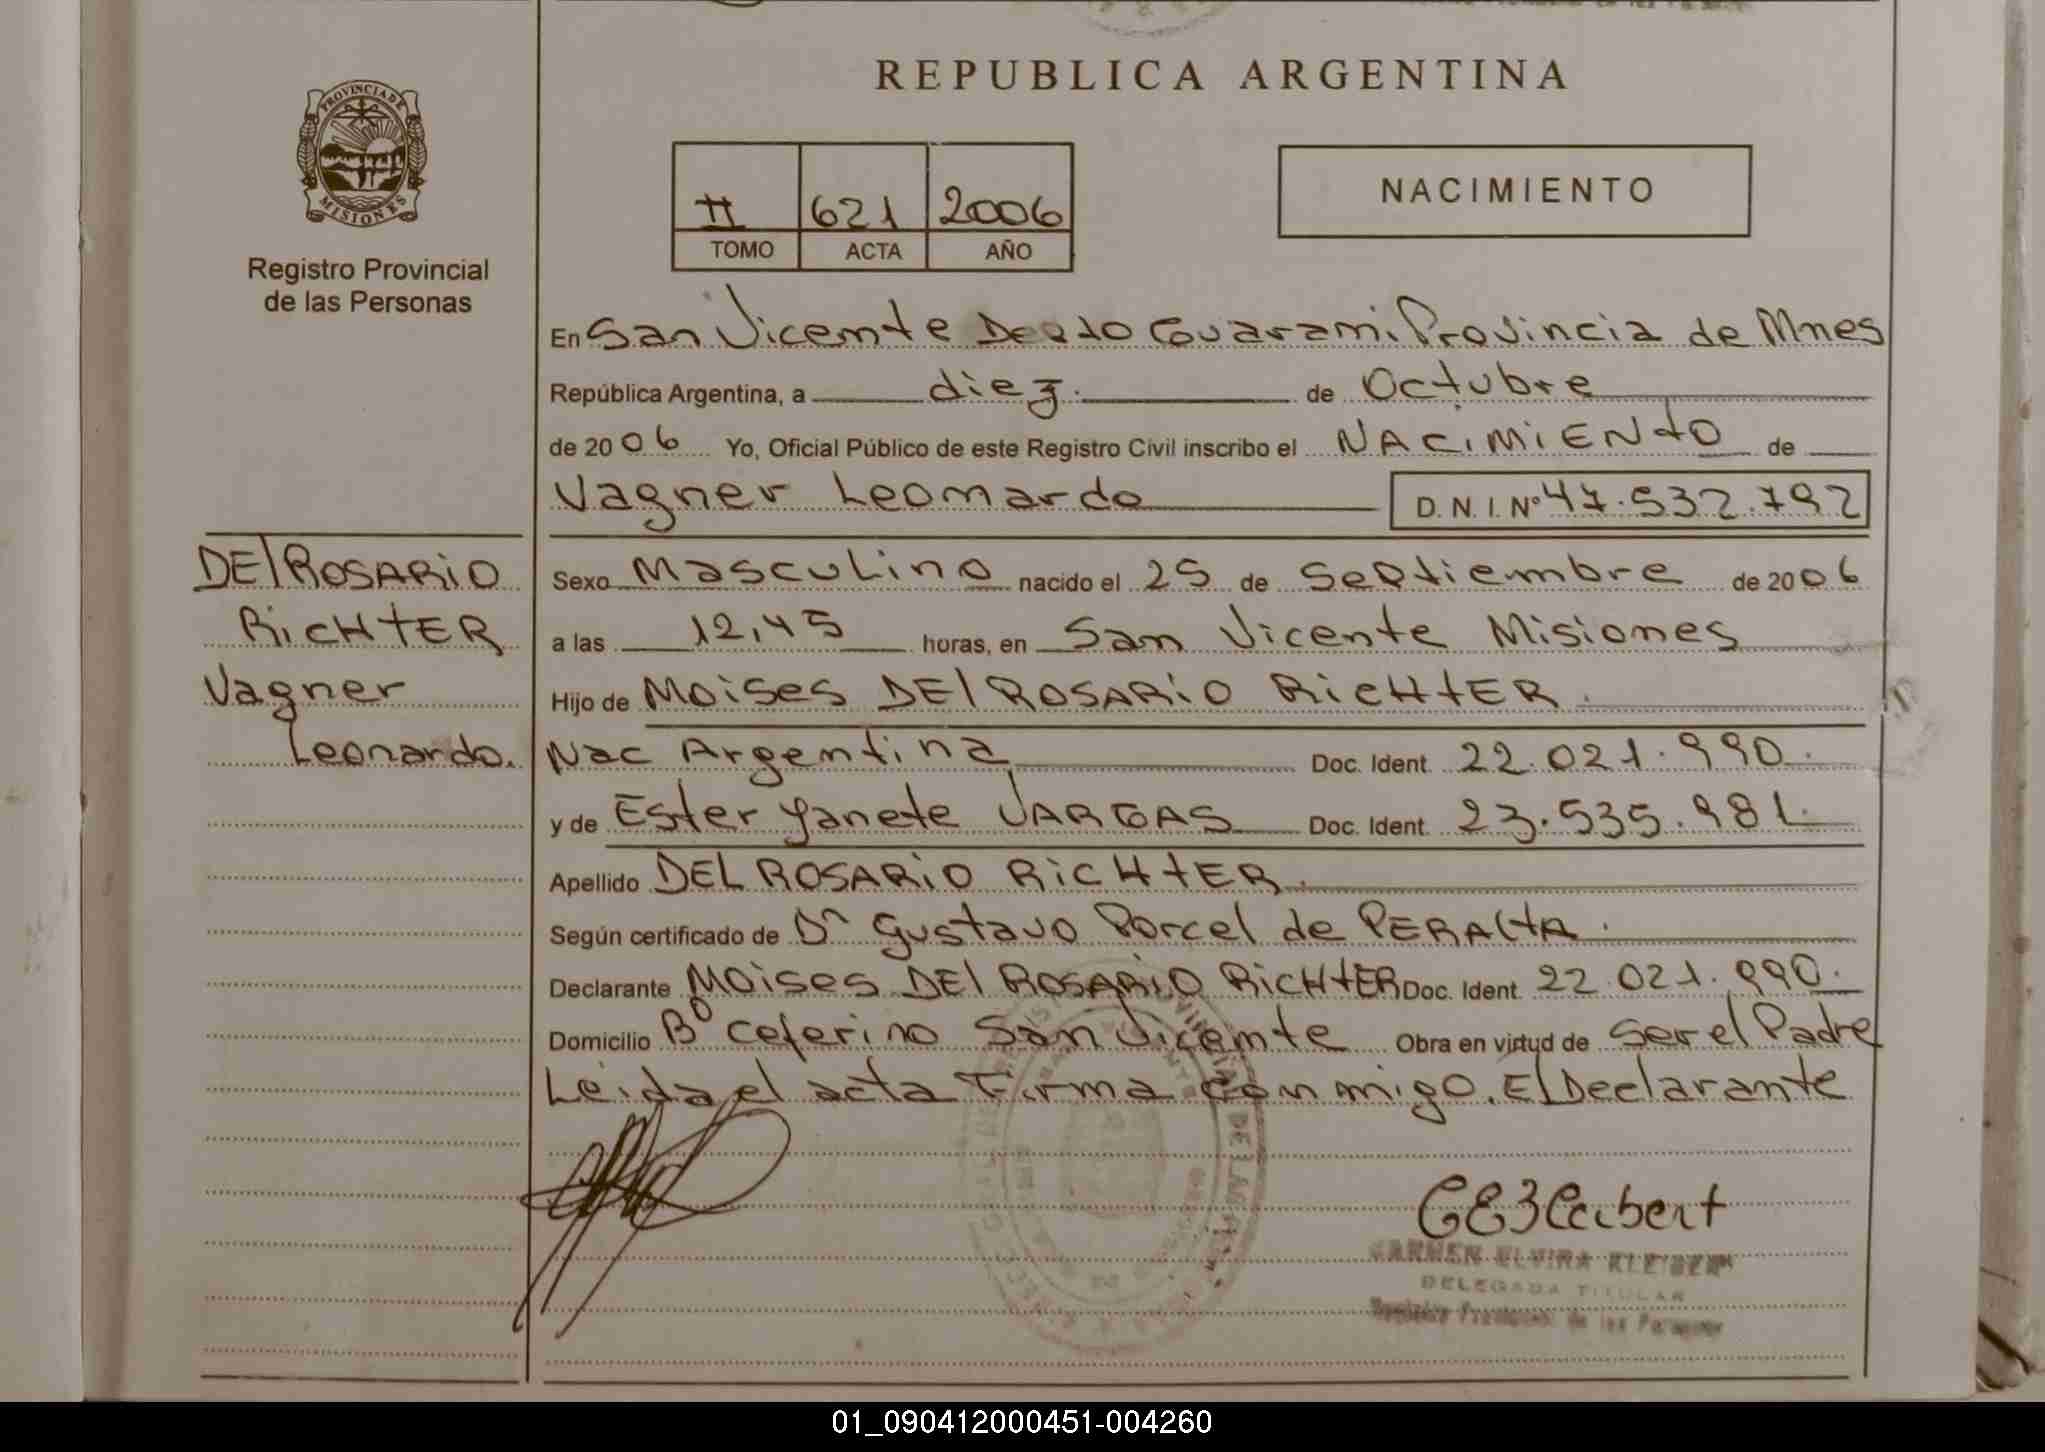 REPUBLICA ARGENTINA
PROVINCIA DE
MISIONES
Registro Provincial
de las Personas
II 621 2006
TOMO ACTA AÑO
NACIMIENTO
En San Vicente Depto Guarani Provincia de Mnes
República Argentina, a diez de Octubre
de 2006 Yo, Oficial Público de este Registro Civil inscribo el NACIMIENTO de
Vagner Leonardo D. N. I. Nº 47.532.792
DEl ROSARIO
RICHTER
Vagner
Leonardo.
Sexo Masculino nacido el 25 de Septiembre de 2006
a las 12,45 horas, en San Vicente Misiones
Hijo de Moises DEl ROSARIO RICHTER.
Nac Argentina Doc. Ident. 22.021.990.
y de Ester Yanete VARGAS Doc. Ident. 23.535.981.
Apellido DEL ROSARIO RICHTER.
Según certificado de Dr Gustavo Porcel de PERALTA.
Declarante MOises DEl ROSARIO RICHTER Doc. Ident. 22.021.990.
Domicilio Bº Ceferino San Vicente Obra en virtud de Ser el Padre
Leida el acta Firma conmigo. El Declarante
CARMEN ELVIRA KLEIBERT
DELEGADA TITULAR
Registro Provincial de las Personas
01_090412000451-004260